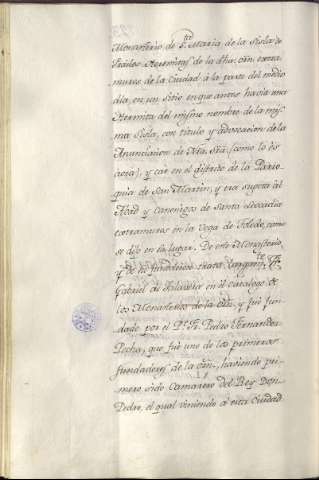 Monasterio de Sta Maria de la Sisla de
Frailes Geronimos de la dha. orn. extra
muros de la Ciudad á la parte del medio
dia, en un sitio en que antes havia una
Hermita del mismo nombre de la mis
ma Sisla, con titulo y advocacion de la
Anunciacion de Na. Sra. (como lo es
aora), y cae en el distrito de la Parro
quia de San Martin, y era sujeta al
Abad y Canonigos de Santa Leocadia
extramuros en la Vega de Toledo, como
se dijo en su lugar. De este Monasterio,
y de su fundacion trata largamte. Fr.
Gabriel de Talavera en el Catalogo de
los Monasterios de la orn. y fue fun
dado por el Pe. Fr. Pedro Fernandez
Pecha, que fue uno de los primeros
fundadores de la orn., haviendo pri
mero sido Camarero del Rey Don
Pedro, el qual viniendo á esta Ciudad